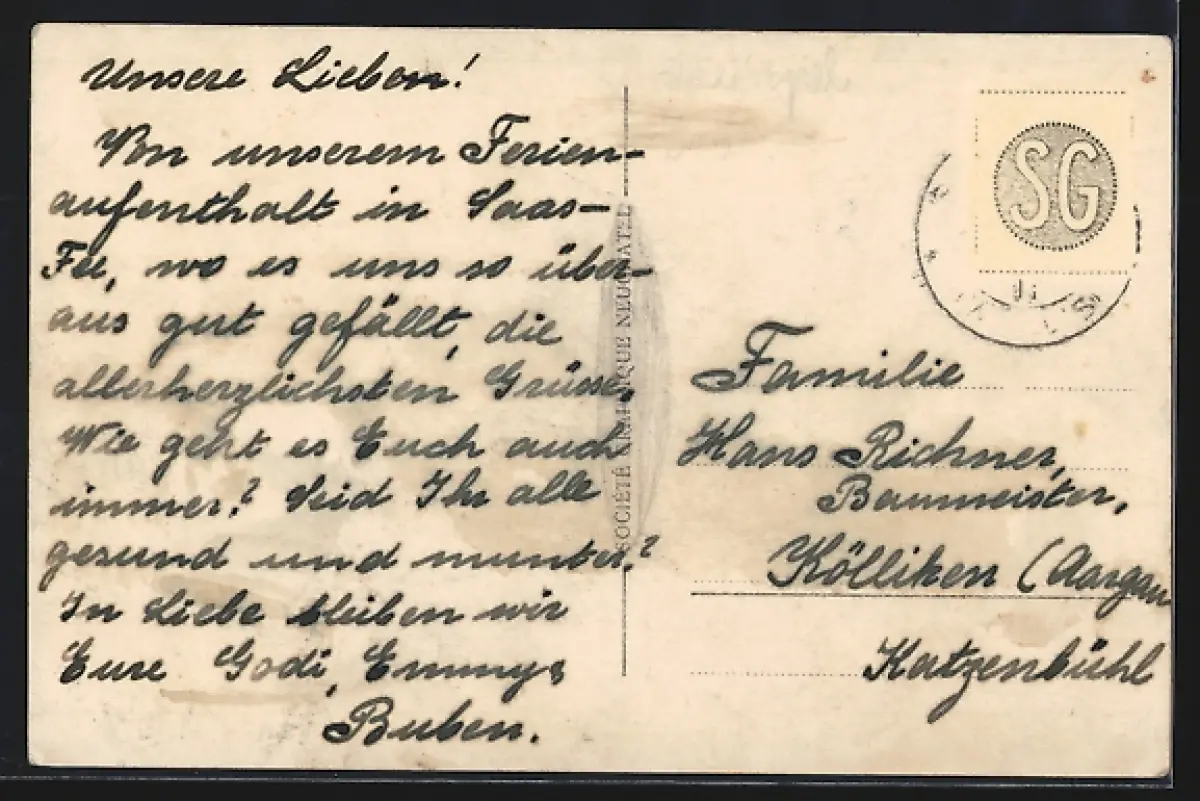 Unsere Lieben!
Von unserem Ferien-
aufenthalt in Saas-
Fee, wo es uns so über-
aus gut gefällt, die
allerherzlichsten Grüsse.
Wie geht es Euch auch
immer? Seid Ihr alle
gesund und munter?
In Liebe bleiben wir
Eure Godi, Emmy &
Buben.
SOCIÉTÉ GRAPHIQUE NEUCHATEL
SG
Familie
Hans Richner,
Baumeister,
Kölliken (Aargau
Katzenbühl